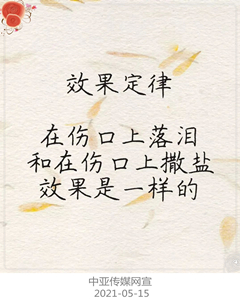 效果定律
在伤口上落泪
和在伤口上撒盐
效果是一样的
中亚传媒网宣
2021-05-15